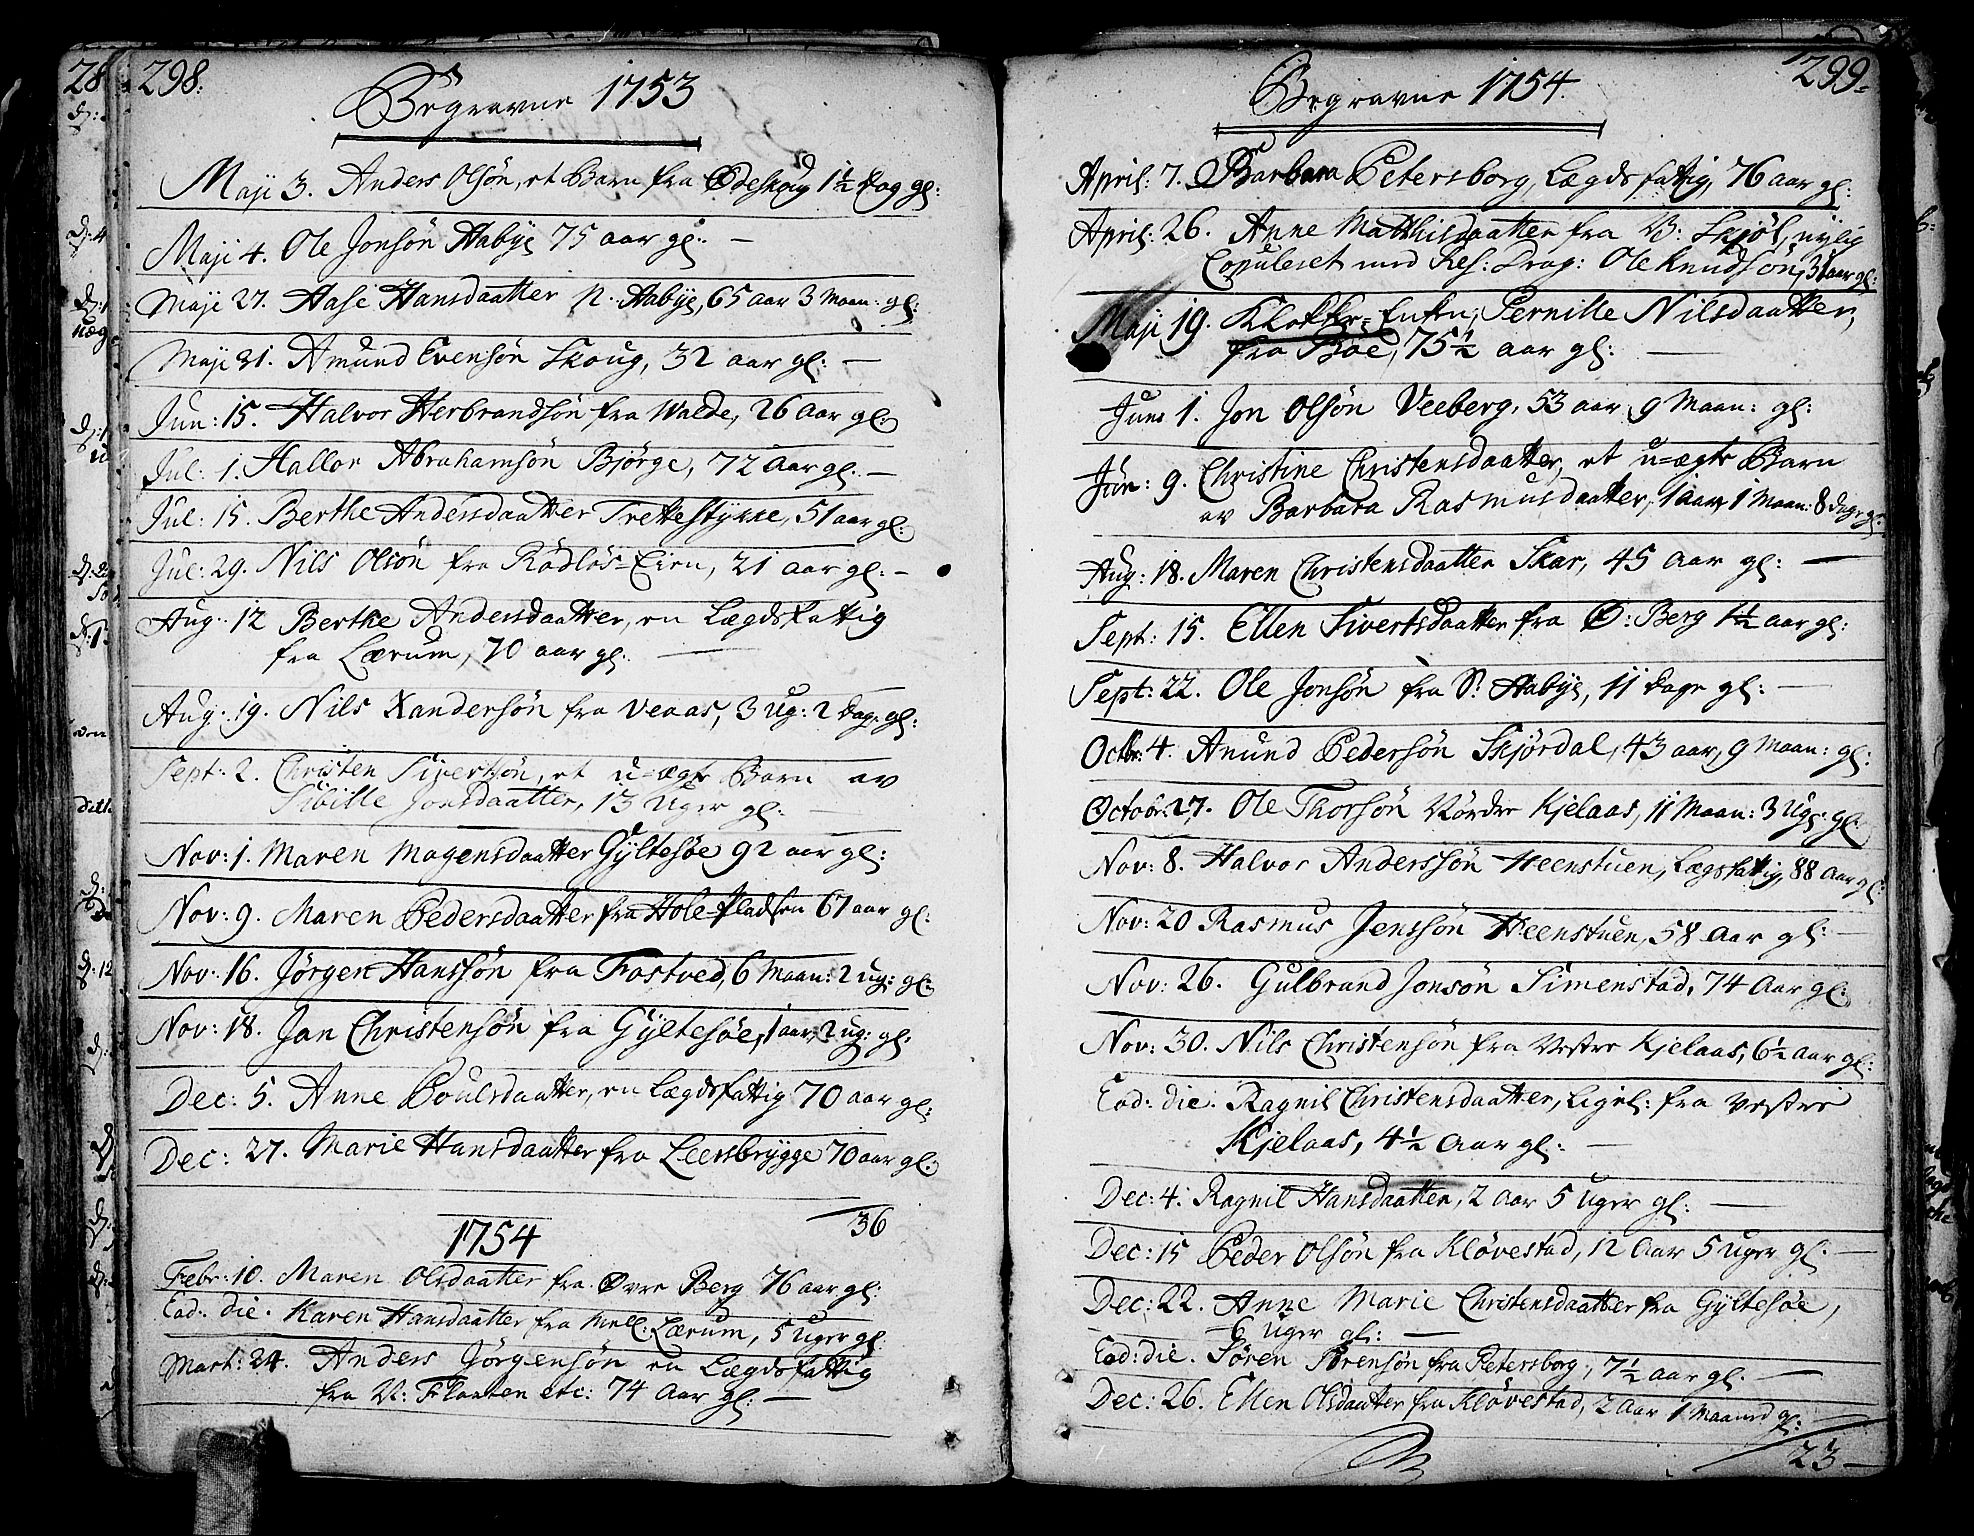 298.
Begravne 1753
Maji 3. Anders Olsön, et Barn fra Ødeskoug 1½ Dag gl:
Maji 4. Ole Jonsön Aabÿe 75 aar gl: —
Maji 27. Aase Hansdaatter N. Aabÿe, 65 aar 3 Maan: gl:
Maji 31. Amund Evensön Skoug, 32 aar gl: —
Jun: 15. Halvor Herbrandsön fra Walde, 26 Aar gl:
Jul: 1. Hallor Abrahamsön Björge, 72 Aar gl: —
Jul: 15. Berthe Andersdaatter Trettestÿkke, 51 aar gl:
Jul: 29. Nils Olsön fra Rödlös=Eien, 21 aar gl: —
Aug: 12 Berthe Andersdaatter, en Lægdsfattig
fra Lærum, 70 aar gl: —
Aug: 19. Nils Xandersön fra Veaas, 3 Ug: 2 Dage gl:
Sept: 2. Christen Sivertsön, et u=ægte Barn av
Sibille Jonsdaatter, 13 Uger gl: —
Nov: 1. Maren Mogensdaatter Gÿltesøe 92 aar gl:
Nov: 9. Maren Pedersdaatter fra Hole-Pladsen 67 aar gl:
Nov: 16. Jörgen Hanssön fra Fostved, 6 Maan: 2 ug: gl:
Nov: 18. Jan Christensön fra Gÿltesøe, 1 aar, 2 ug: gl:
Dec: 5. Anne Poulsdaatter, en Lægdsfattig 70 aar gl:
Dec: 27. Marie Hansdaatter fra Leersbrÿgge 70 aar gl:
36
1754
Febr: 10. Maren Olsdaatter fra Øvre Berg 76 aar gl:
Eod: die. Karen Hansdaatter fra Mell: Lærum, 5 Uger gl:
Mart: 24. Anders Jörgensön en Lægdsfattig
fra V: Flaaten etc: 74 Aar gl: —
299.
Begravne 1754.
April: 7. Barbara Petersborg, Lægdsfattig, 76 aar gl:
April: 26. Anne Matthisdaatter fra V: Skjöl, nylig
Copuleret med Res: Drag: Ole Knudsön, 31 aar gl:
Maji 19. Klokker=Enken, Pernille Nilsdaatter,
fra Böe, 75½ aar gl: —
Juni 1. Jon Olsön Veeberg, 53 aar 9 Maan: gl:
Jun: 9. Christine Christensdaatter, et u=ægte Barn
av Barbara Rasmusdaatter, 1 aar, 1 Maan: 8 dage gl:
Aug: 18. Maren Christensdaatter Skar, 45 aar gl: —
Sept: 15. Ellen Sivertsdaatter fra Ø: Berg 1½ aar gl:
Sept: 22. Ole Jonsön fra S: Aabÿe, 11 Dage gl: —
Octbr: 4. Anund Pedersön Skjördal, 43 aar, 9 Maan: gl:
Octobr: 27. Ole Thorsön Nördre Kjelaas, 11 Maan: 3 Uger gl:
Nov: 8. Halvor Anderssön Heenstuen, Lægsfattig, 88 Aar gl:
Nov: 20 Rasmus Jenssön Heenstuen, 58 Aar gl: —
Nov: 26. Gulbrand Jonsön Simenstad, 74 Aar gl:
Nov: 30. Nils Christensön fra Vestre Kjelaas, 6½ Aar gl:
Eod: die. Ragnil Christensdaatter, Ligel: fra Vestre
Kjelaas, 4½ Aar gl: —
Dec: 4. Ragnil Hansdaatter, 2 Aar 5 Uger gl: —
Dec: 15 Peder Olsön fra Klövestad, 12 Aar 5 Uger gl: —
Dec: 22. Anne Marie Christensdaatter fra Gÿltesøe,
6 Uger gl: —
Eod: die. Sören Sörensön fra Petersborg, 7½ aar gl: —
Dec: 26. Ellen Olsdaatter fra Klövestad, 2 Aar 1 Maaned gl:
23 —